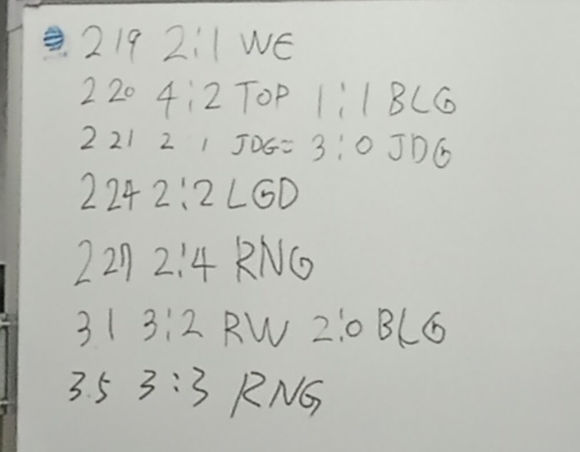 219 2:1 WE
220 4:2 TOP 1:1 BLG
221 2 1 JDG= 3:0 JDG
224 2:2 LGD
227 2:4 RNG
31 3:2 RW 2:0 BLG
3.5 3:3 RNG